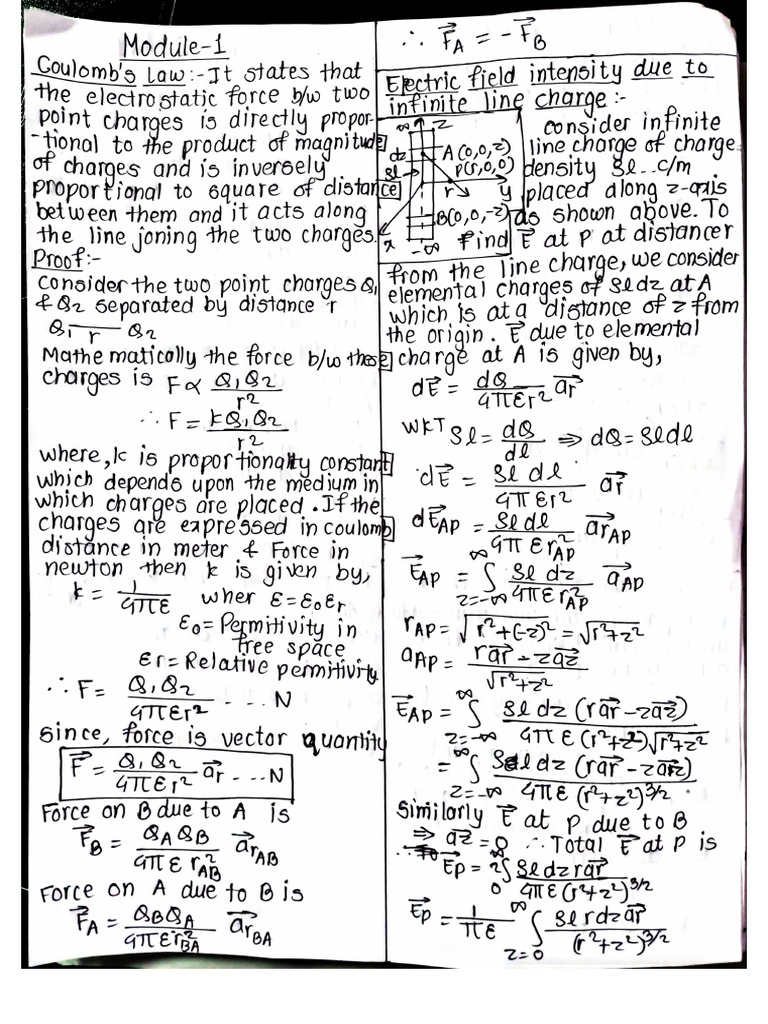 Module-1
Coulomb's Law:- It states that
the electrostatic force b/w two
point charges is directly propor-
-tional to the product of magnitude
of charges and is inversely
proportional to square of distance
between them and it acts along
the line joning the two charges.
Proof:-
Consider the two point charges Q₁
& Q₂ separated by distance r
Q₁ r Q₂
Mathematically the force b/w these
charges is F ∝ Q₁Q₂/r²
∴ F = kQ₁Q₂/r²
where, k is proportionality constant
which depends upon the medium in
which charges are placed. If the
charges are expressed in coulomb
distance in meter & Force in
newton then k is given by,
k = 1/4πε wher ε=ε₀εr
ε₀=Permitivity in
free space
εr=Relative permitivity
∴ F= Q₁Q₂/4πεr² ....N
Since, force is vector quantity
F⃗ = Q₁Q₂/4πεr² a⃗r ....N
Force on B due to A is
F⃗B = QAQB/4πε r²AB a⃗rAB
Force on A due to B is
F⃗A = QBQA/4πεr²BA a⃗rBA
∴ F⃗A = -F⃗B
Electric field intensity due to
infinite line charge:-
∞ z
dz A(0,0,z)
ρl P(r,0,0)
r y
B(0,0,-z)
x -∞
consider infinite
line charge of charge
density ρl..c/m
placed along z-axis
as shown above. To
find E⃗ at P at distancer
from the line charge, we consider
elemental charges of ρldz at A
which is at a distance of z from
the origin. E⃗ due to elemental
charge at A is given by,
dE⃗ = dQ/4πεr² a⃗r
WKT ρl = dQ/dl ⇒ dQ=ρldl
dE⃗ = ρl dl/4πεr² a⃗r
dE⃗AP = ρldl/4π εr²AP a⃗rAP
E⃗AP = ∫z=-∞^∞ ρl dz/4πεr²AP a⃗AP
rAP = √r²+(-z)² = √r²+z²
aAP = ra⃗r - za⃗z/√r²+z²
E⃗AP = ∫z=-∞^∞ ρl dz (ra⃗r-za⃗z)/4πε(r²+z²)√r²+z²
= ∫z=-∞^∞ ρl dz (ra⃗r - za⃗z)/4πε(r²+z²)3/2
Similorly E⃗ at P due to B
⇒ a⃗z = 0 ∴ Total E⃗ at P is
E⃗p = 2∫0^∞ ρl dz ra⃗r/4πε(r²+z²)3/2
E⃗p = 1/πε ∫z=0^∞ ρl r dz a⃗r/(r²+z²)3/2